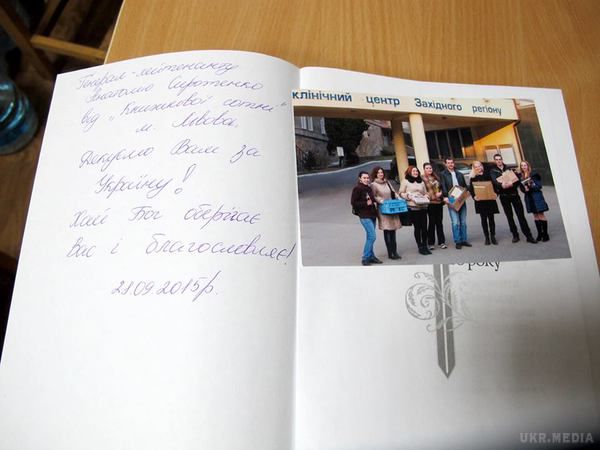 Генерал-лейтенанту
Анатолію Сиротенко
від „Книжкової сотні"
м. Львова.
Дякуємо Вам за
Україну!
Хай Бог оберігає
Вас і благословляє!
28.09.2015р.
клінічний центр Західного регіону
року
UKR.MEDIA